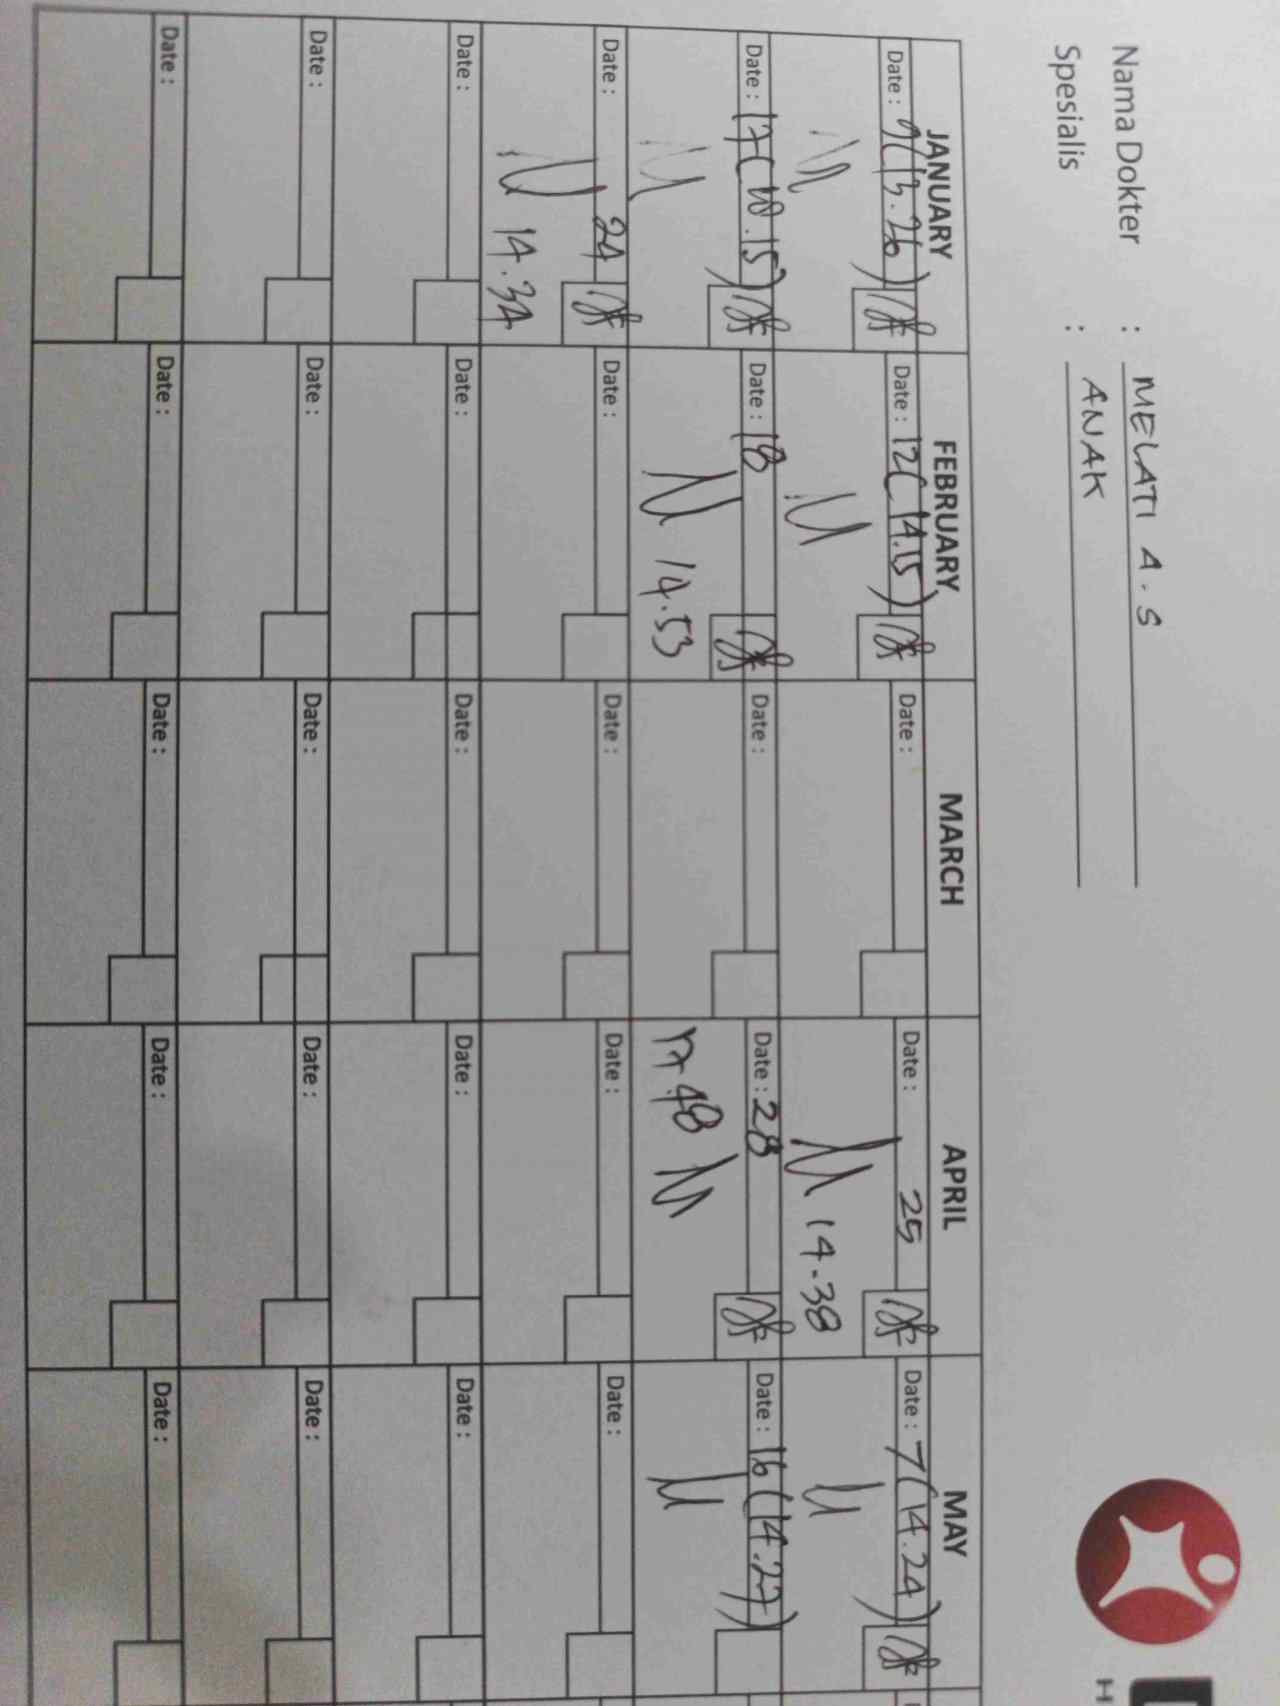 Nama Dokter : MELATI A.S
Spesialis : ANAK
JANUARY FEBRUARY MARCH APRIL MAY
Date : 9(13.26) Date : 12(14.15) Date : Date : 25 Date : 7(14.24)
14.38
Date : 17(10.15) Date : 18 Date : Date : 28 Date : 16(14.27)
14.53 17.48
Date : 24 Date : Date : Date : Date :
14.34
Date : Date : Date : Date : Date :
Date : Date : Date : Date : Date :
Date : Date : Date : Date : Date :
H